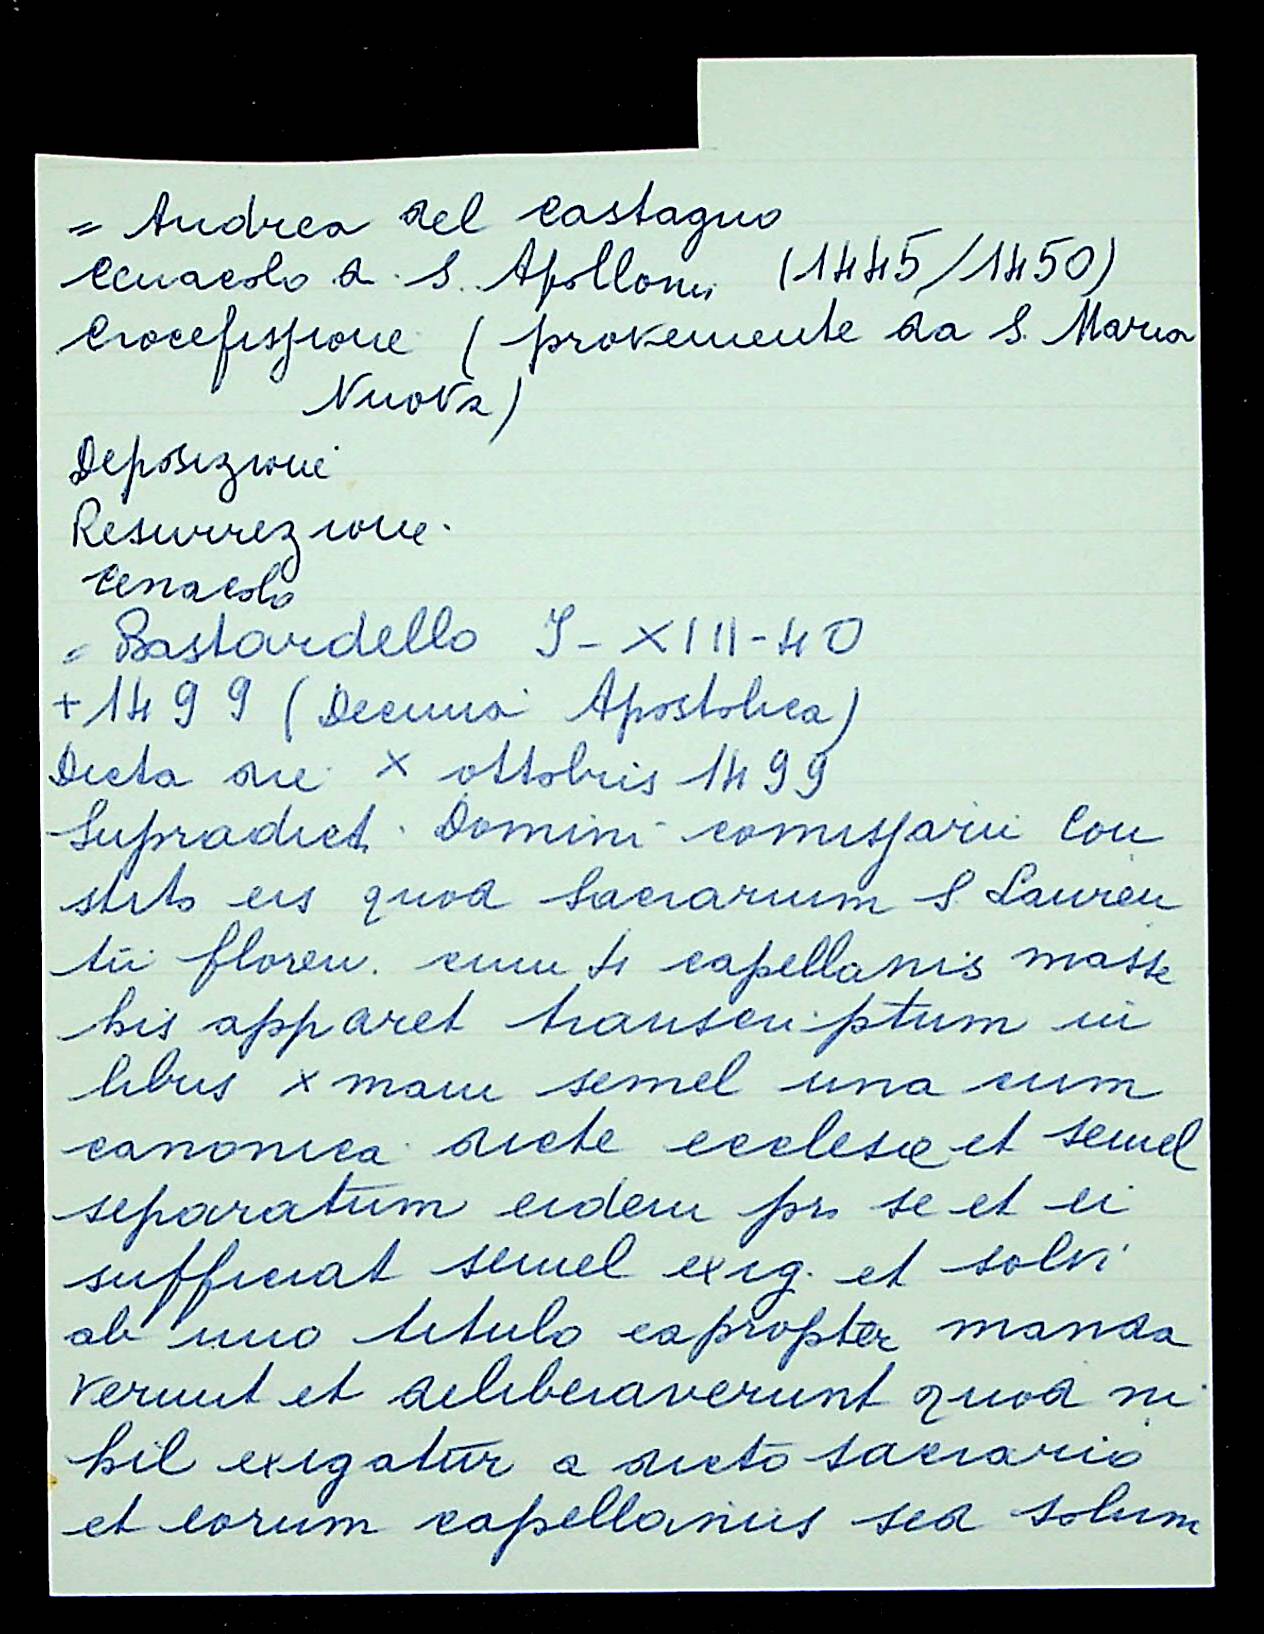 = Andrea del Castagno
Cenacolo d. S. Apollonia (1445/1450)
Crocefissione (provenente da S. Maria
Nuova)
Deposizione
Resurrezione.
Cenacolo
= Bastardello I-XIII-40
+1499 (Decima Apostolica)
Dicta die X ottobris 1499
Supradict. Domini comissarii con
stito eis quod sacrarium S Lauren
tii floren. cum capellanis
apparet transcriptum in
libus x mane semel una cum
canonica dicte ecclesie et semel
separatum eidem pro se et ei
sufficiat semel exig. et solvi
ab uno titulo eapropter manda
verunt et deliberaverunt quod ni
hil exigatur a dicto sacrario
et eorum capellaniis sed solum